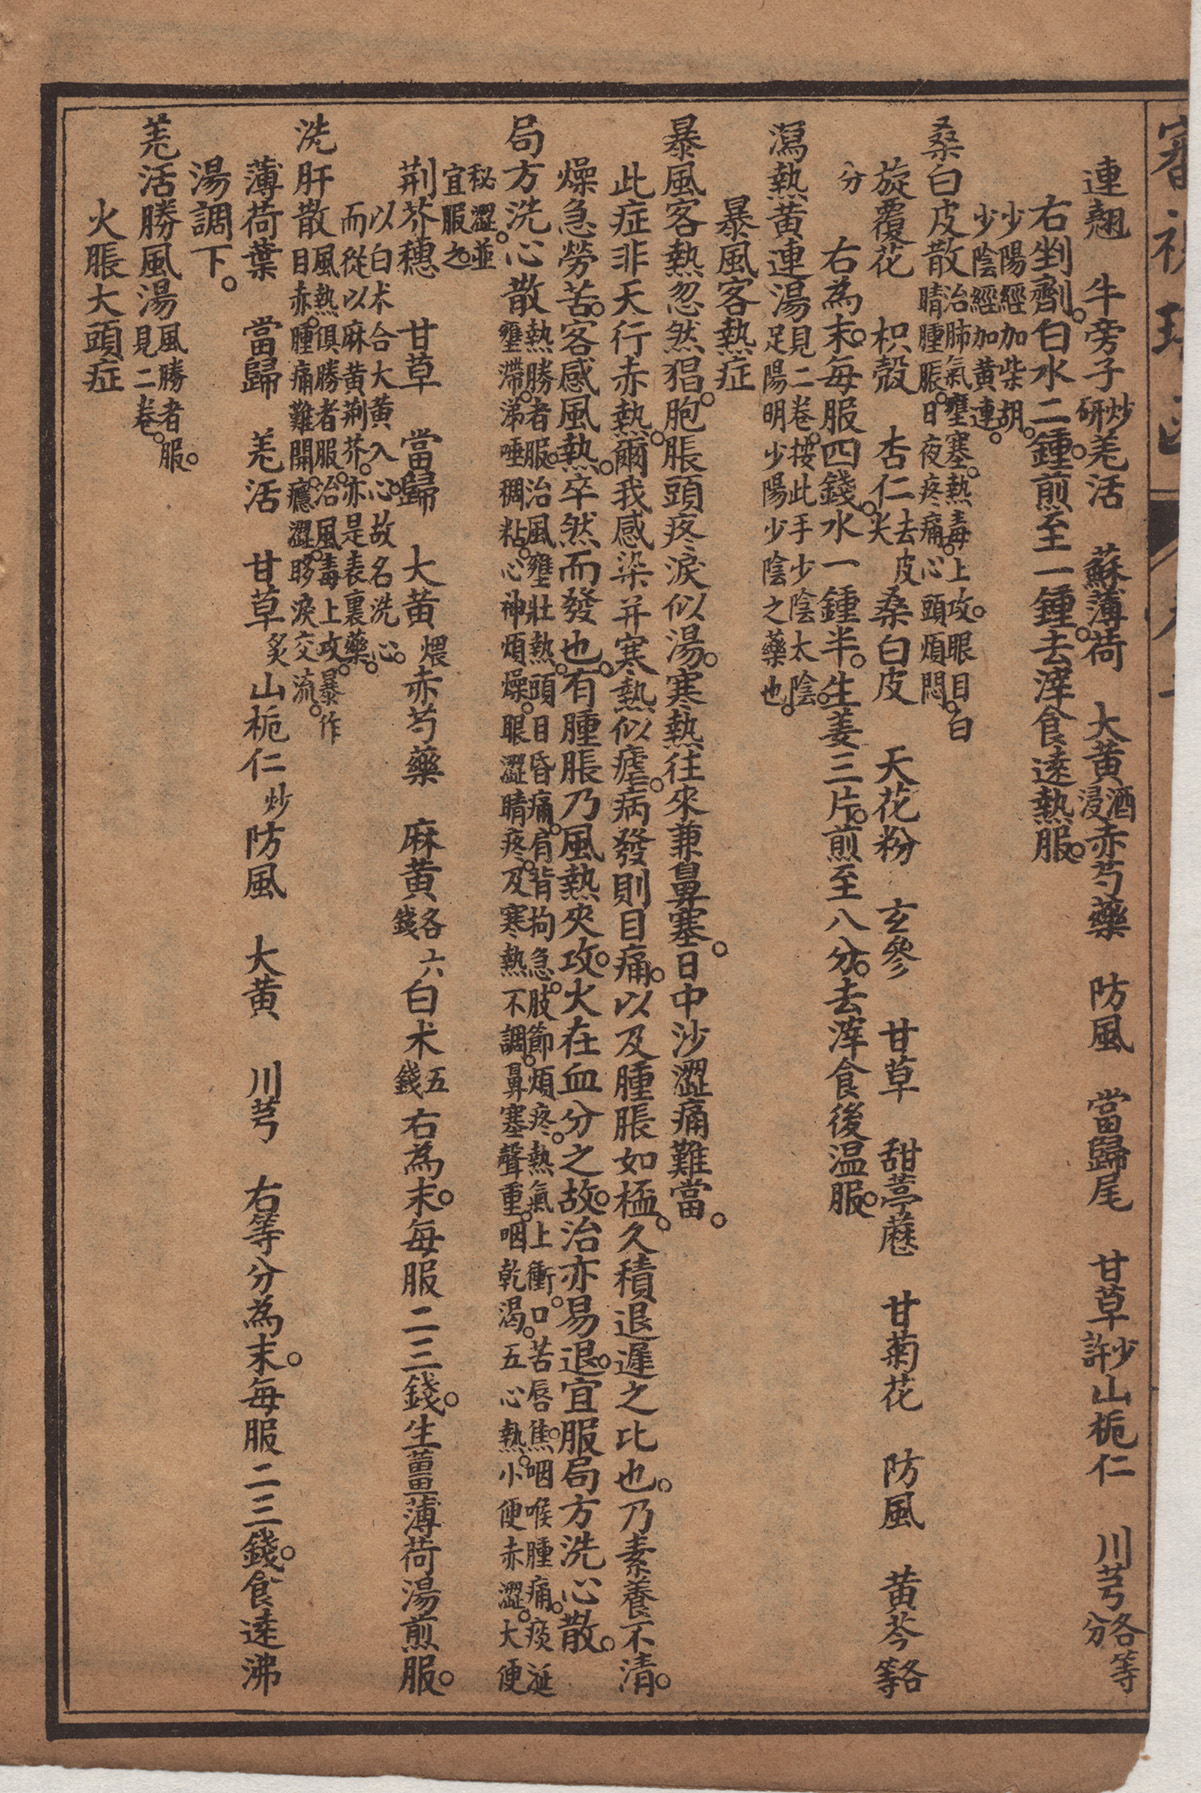 連翹　牛旁子炒研羗活　蘇薄荷　大黄酒浸赤芍藥　防風　當歸尾　甘草少許山梔仁　川芎各等分
右剉劑。白水二鍾。煎至一鍾。去滓食遠熱服。
少陽經加柴胡。
少陰經加黄連。
桑白皮散治肺氣壅塞。熱毒上攻。眼目白睛腫脹。日夜疼痛。心頭煩悶。
旋覆花　枳殼　杏仁去皮尖　桑白皮　天花粉　玄參　甘草　甜葶藶　甘菊花　防風　黄芩各等
分　右為末。每服四錢。水一鍾半。生姜三片。煎至八分。去滓食後温服。
瀉熱黄連湯見二卷。按此手少陰太陰足陽明少陽少陰之藥也。
暴風客熱症
暴風客熱忽然猖。胞脹頭疼淚似湯。寒熱往來兼鼻塞。日中沙澀痛難當。
此症非天行赤熱。爾我感染并寒熱似瘧。病發則目痛。以及腫脹如極。久積退遲之比也。乃素養不清。
燥急勞苦。客感風熱。卒然而發也。有腫脹乃風熱夾攻。火在血分之故。治亦易退。宜服局方洗心散。
局方洗心散熱勝者服。治風壅壯熱。頭目昏痛。肩背拘急。肢節煩疼。熱氣上衝。口苦唇焦。咽喉腫痛。痰涎壅滯。涕唾稠粘。心神煩燥。眼澀睛疼。及寒熱不調。鼻塞聲重。咽乾渴。五心熱。小便赤澀。大便
秘澀。並
宜服之。
荆芥穗　甘草　當歸　大黄煨赤芍藥　麻黄各六錢白术五錢右為末。每服二三錢。生薑薄荷湯煎服。
以白术合大黄入心。故名洗心。
而從以麻黄荆芥。亦是表裏藥。
洗肝散風熱俱勝者服。治風毒上攻。暴作目赤。腫痛難開。癮澀。眵淚交流。
薄荷葉　當歸　羗活　甘草炙山梔仁炒防風　大黄　川芎　右等分為末。每服二三錢。食遠沸
湯調下。
羗活勝風湯風勝者服。見二卷。
火脹大頭症